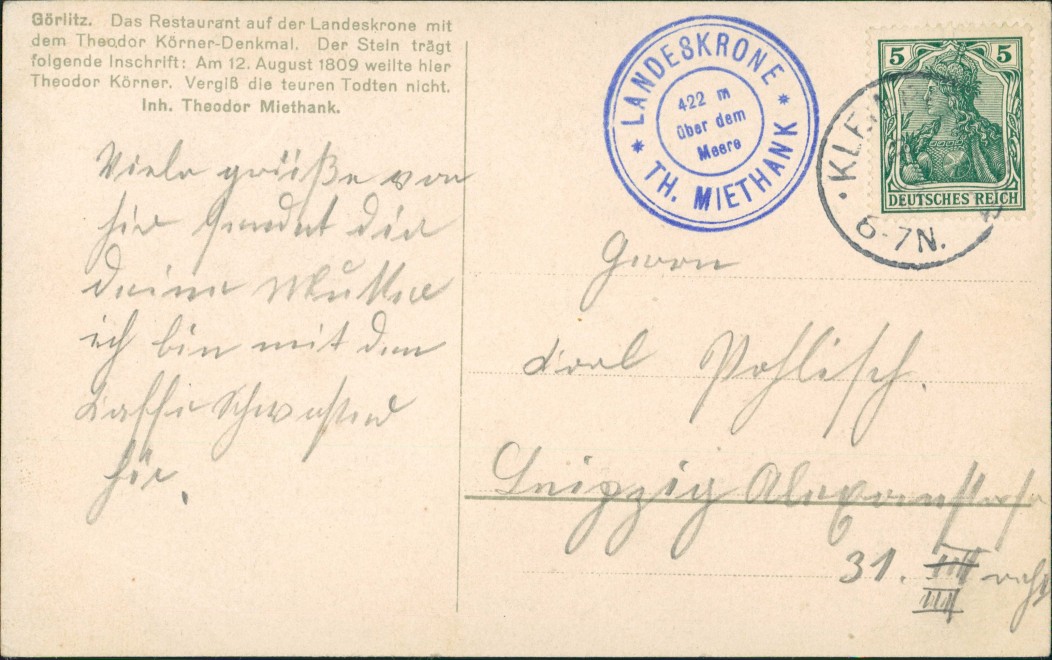 Görlitz. Das Restaurant auf der Landeskrone mit
dem Theodor Körner-Denkmal. Der Stein trägt
folgende Inschrift: Am 12. August 1809 weilte hier
Theodor Körner. Vergiß die teuren Todten nicht.
Inh. Theodor Miethank.
Viele grüße von
hir sendet dir
deine Mutter
ich bin mit den
Kaffe Schwester
hir.
* LANDESKRONE *
422 m
über dem
Meere
TH. MIETHANK
5 5
DEUTSCHES REICH
6-7N.
Herrn
Karl Pohlisch.
Leipzig
31. III
III